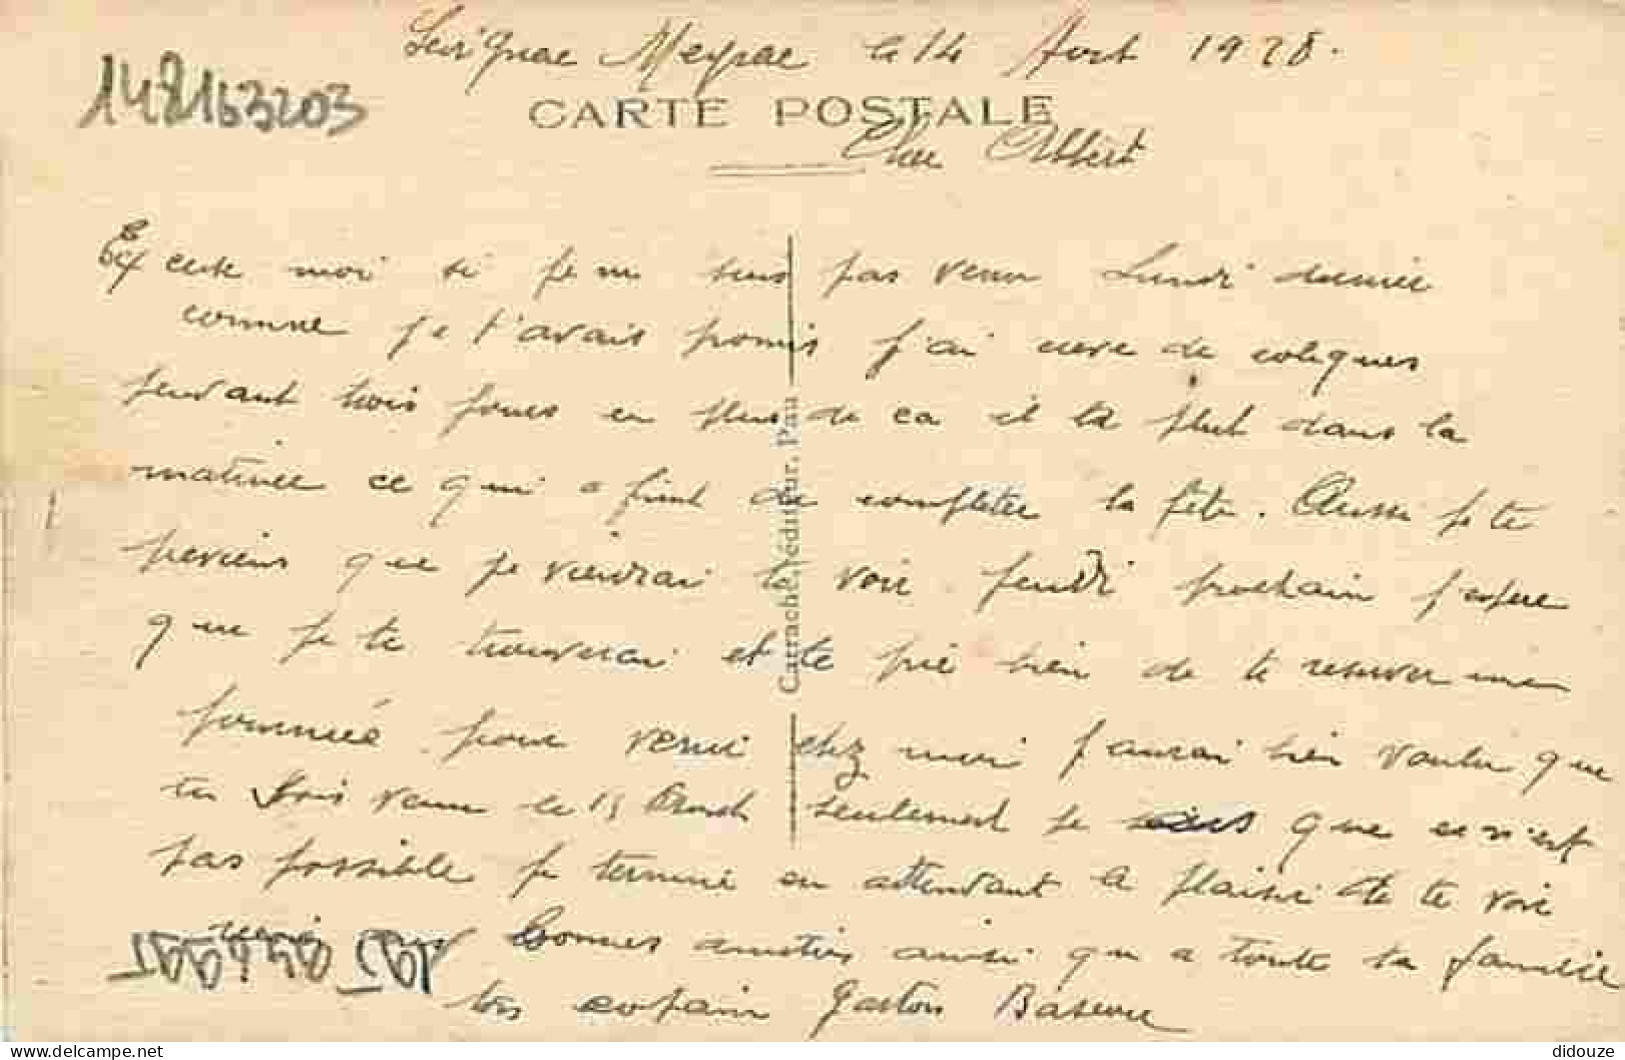 Sevignac Meyrac le 14 Aout 1928.
148163203
CARTE POSTALE
Cher Albert
Excuse moi si je ne suis pas venu Lundi dernier
comme je t'avais promis j'ai eu de coliques
pendant trois jours en plus de ca il la plut dans la
matinee ce qui a fini de completer la fête. Aussi je te
previens que je viendrai te voir jeudi prochain j'espere
que je te trouverai et te prie bien de te reserver une
journée pour venir chez moi j'aurai bien voulu que
tu sois venu le 15 Aout seulement je sais que ce n'est
pas possible je termine en attendant le plaisir de te voir
Bonnes amities ainsi qu a toute ta famille
ton copain Gaston
Carrache, éditeur, Pau
didouze